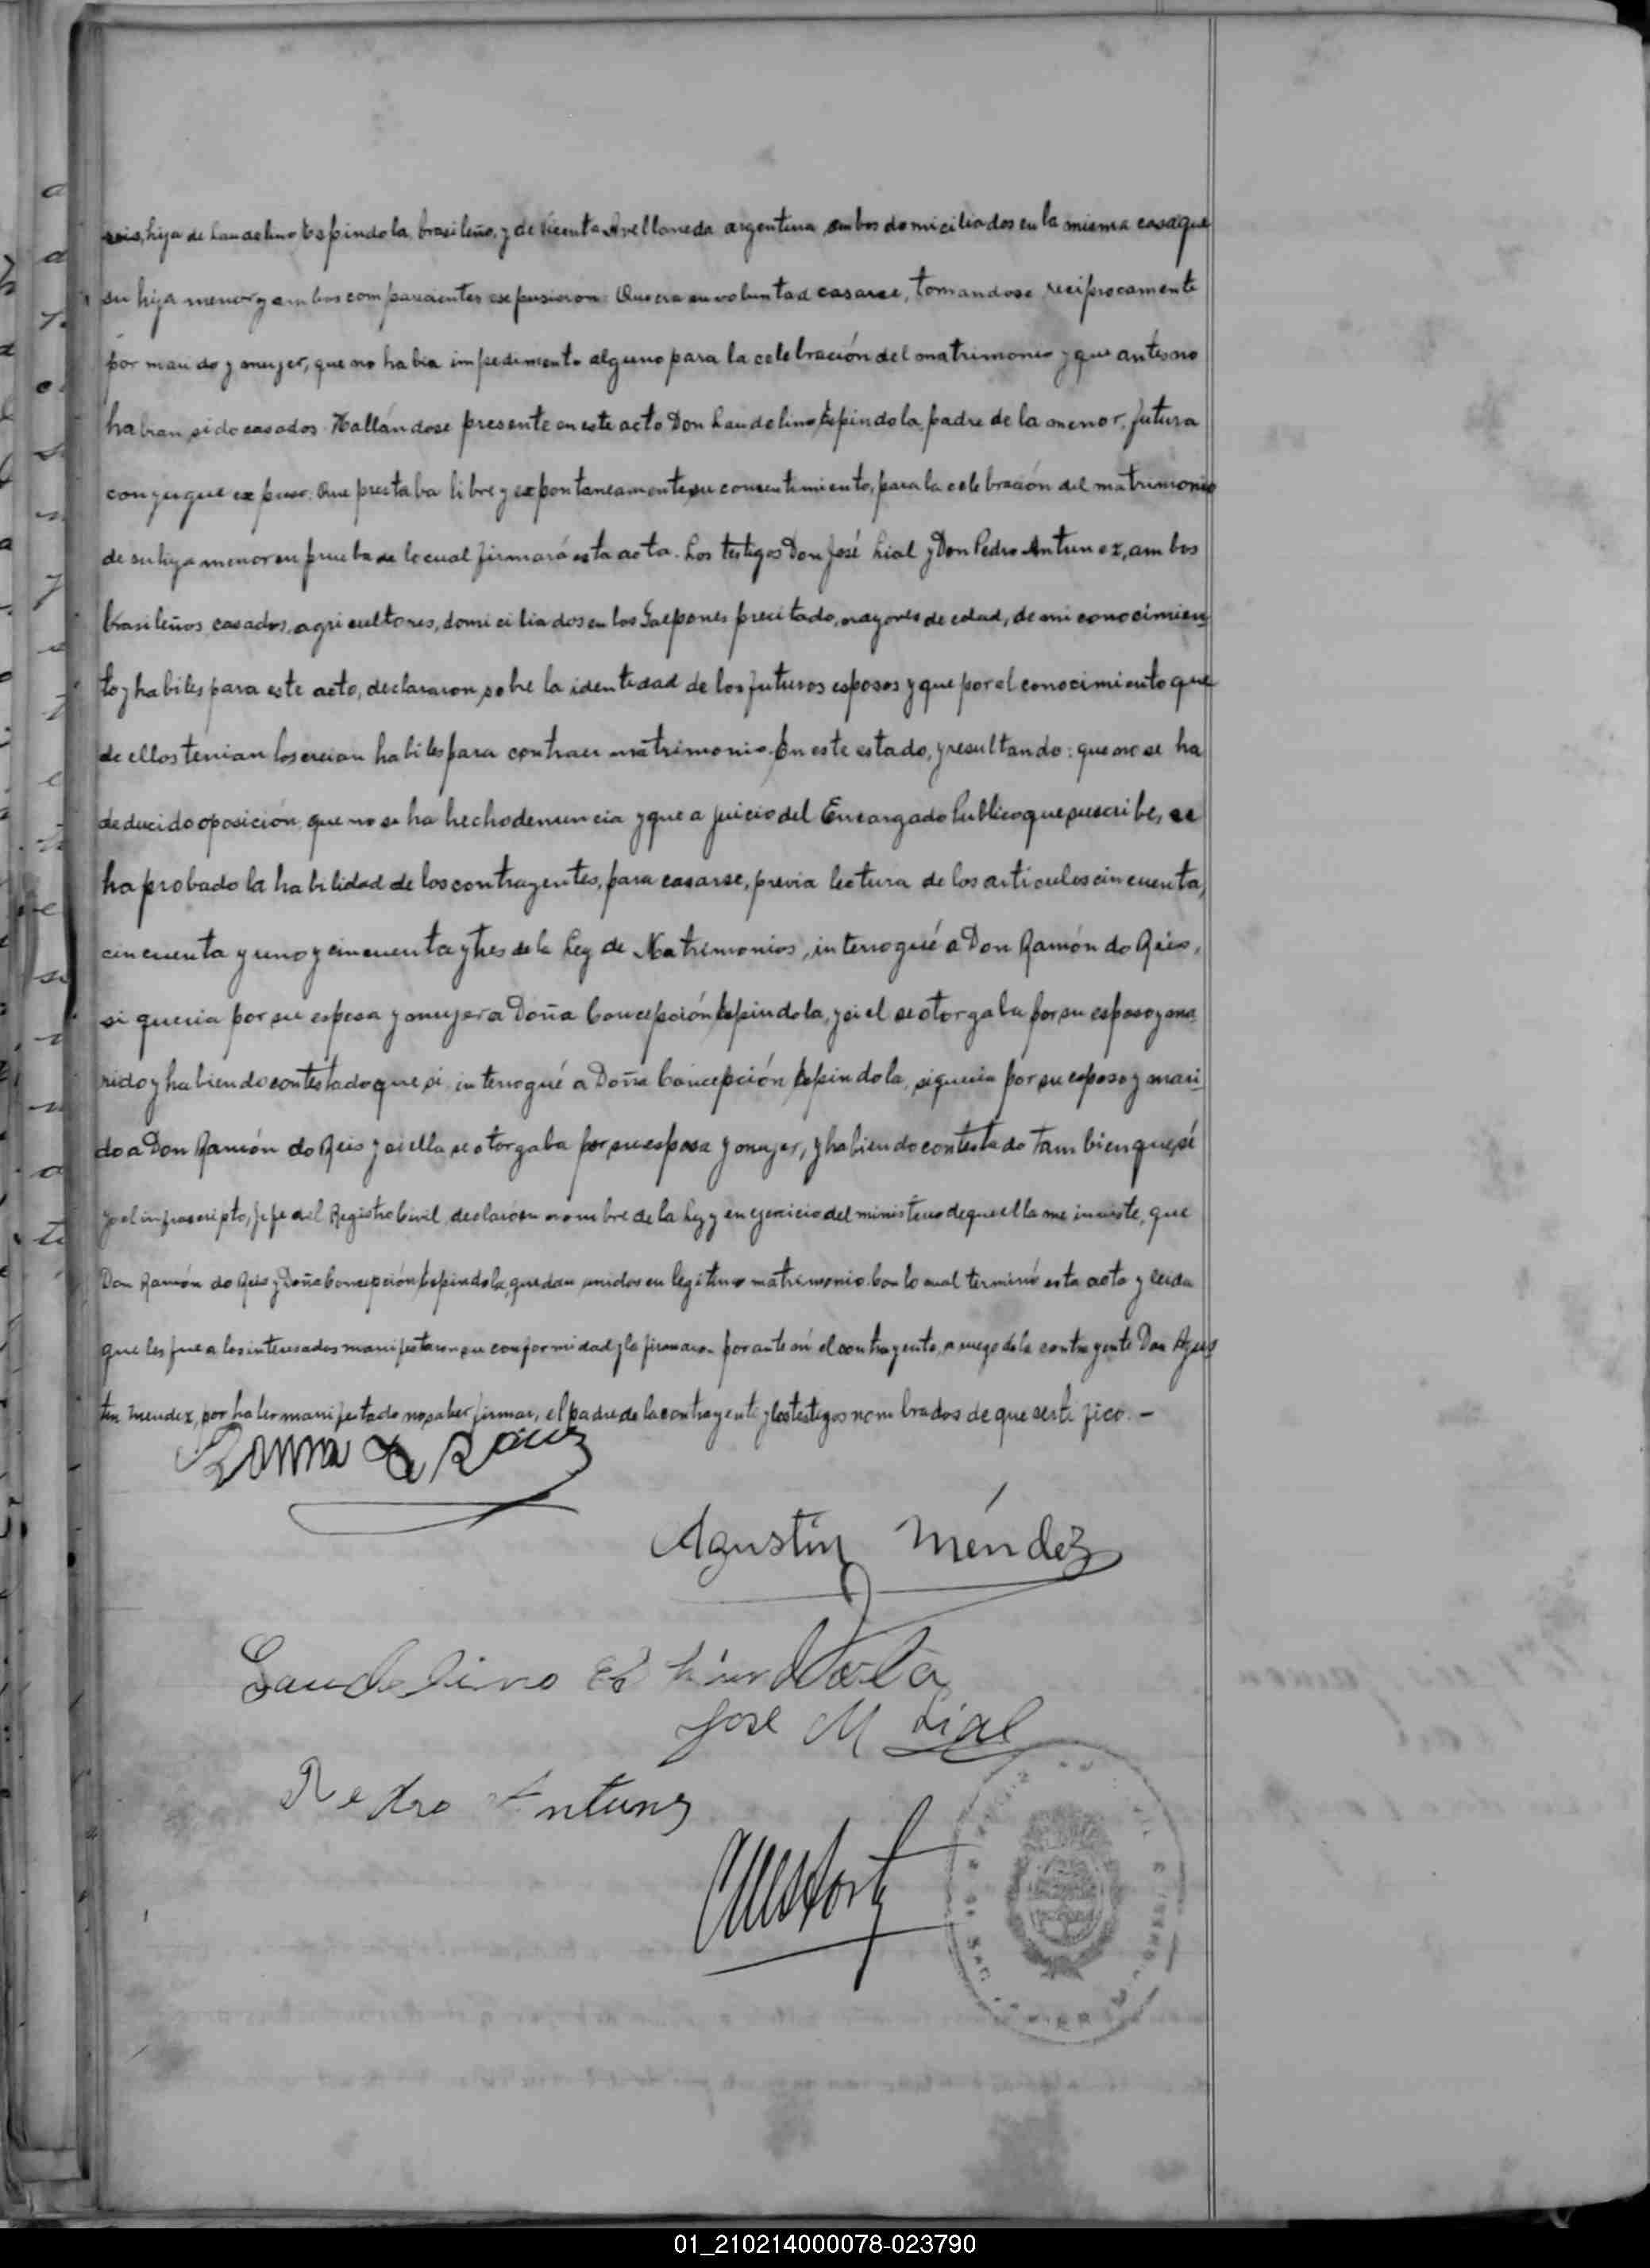 seis, hija de Laudelino Espindola, brasileño, y de Vicenta Avellaneda argentina ambos domiciliados en la misma casa que
su hija menor y ambos comparecientes espusieron: Que era su voluntad casarse, tomandose reciprocamente
por marido y mujer, que no habia impedimento alguno para la celebración del matrimonio y que antes no
habian sido casados. Hallándose presente en este acto Don Laudelino Espindola, padre de la menor, futura
conyugue expuso: Que prestaba libre y expontaneamente su consentimiento, para la celebración del matrimonio
de su hija menor en prueba de lo cual firmará esta acta. Los testigos Don José Lial y Don Pedro Antunez, ambos
brasileños, casados, agricultores, domiciliados en los Galpones precitado, mayores de edad, de mi conocimien
to y habiles para este acto, declararon sobre la identidad de los futuros esposos y que por el conocimiento que
de ellos tenian los creian habiles para contraer matrimonio. En este estado, y resultando: que no se ha
deducido oposición, que no se ha hecho denuncia y que a juicio del Encargado Publico que suscribe, se
ha probado la habilidad de los contrayentes, para casarse, previa lectura de los articulos cincuenta,
cincuenta y uno y cincuenta y tres de la Ley de Matrimonios, interrogué a Don Ramón do Reis,
si queria por su esposa y mujer a Doña Concepción Espindola, y si el se otorgaba por su esposo y ma
rido y habiendo contestado que si, interrogué a Doña Concepción Espindola, si queria por su esposo y mari
do a Don Ramón do Reis y si ella se otorgaba por su esposa y mujer, y habiendo contestado tambien que sí
yo el infrascripto, Jefe del Registro Civil, declaro en nombre de la Ley y en ejercicio del ministerio de que ella me inviste, que
Don Ramón do Reis y Doña Concepción Espindola, quedan unidos en legítimo matrimonio. Con lo cual terminó esta acta y leida
que les fue a los interesados manifestaron su conformidad y la firmaron por ante mi el contrayente, a ruego de la contrayente Don Agus
tin Mendez, por haber manifestado no saber firmar, el padre de la contrayente y los testigos nombrados de que certifico. –
Agustín Méndez
Laudelino Espindola
José M Lial
Pedro Antunez